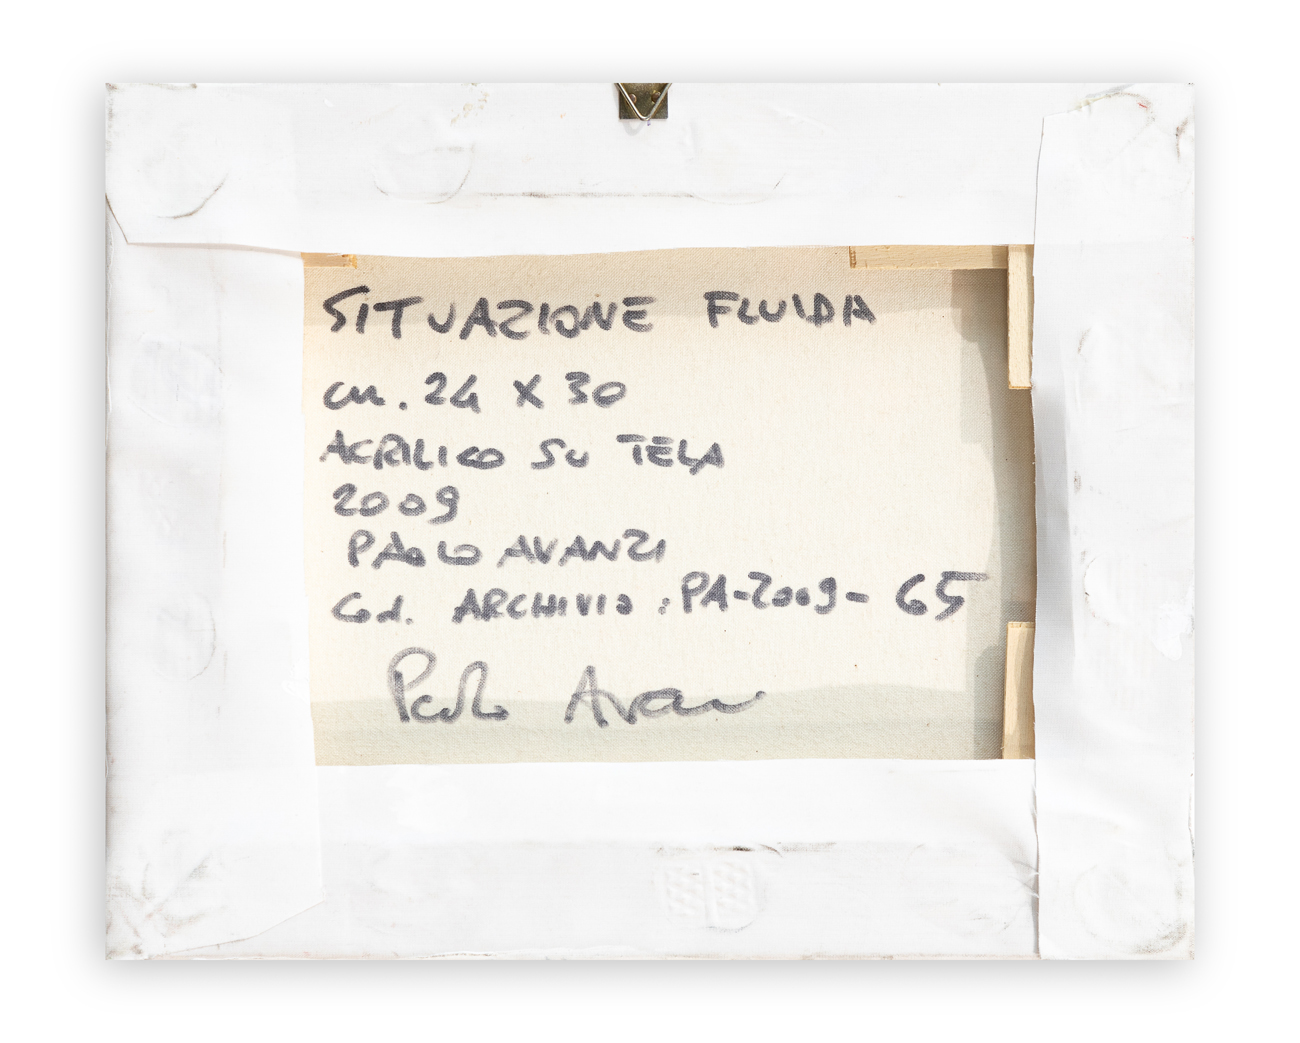 SITUAZIONE FLUIDA
cm. 24 X 30
ACRILICO SU TELA
2009
PAOLO AVANZI
Cod. ARCHIVIO : PA-2009-65
Paolo Avanzi